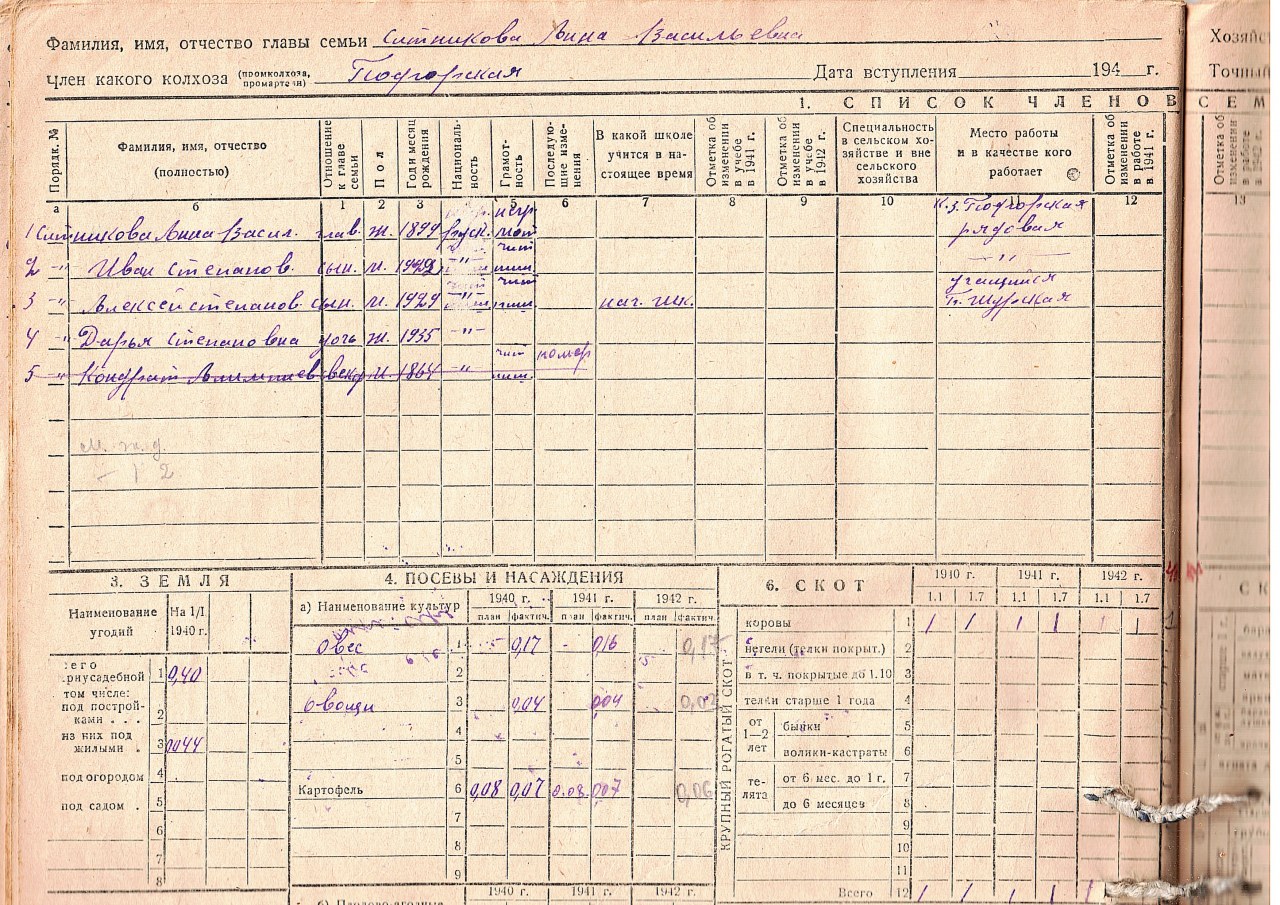 Фамилия, имя, отчество главы семьи Ситникова Анна Васильевна
Член какого колхоза (промколхоза, промартели) Подгорская Дата вступления 194 г.
1. СПИСОК ЧЛЕНОВ СЕМ
Порядк. № Фамилия, имя, отчество (полностью) Отношение к главе семьи Пол Год и месяц рождения Националь-ность Грамот-ность Последую-щие изме-нения В какой школе учится в на-стоящее время Отметка об изменении в учебе в 1941 г. Отметка об изменении в учебе в 1942 г. Специальность в сельском хо-зяйстве и вне сельского хозяйства Место работы и в качестве кого работает Отметка об изменении в работе в 1941 г.
а б 1 2 3 5 6 7 8 9 10 11 12 13
1 Ситникова Анна Васил. глав. ж. 1899 русск. негр мот К.з. Подгорская рядовая
2 -"- Иван Степанов. сын. м. -"- чит пиш. -"-
3 -"- Алексей Степанов. сын. м. 1929 -"- чит пиш. нач. шк. учащийся
4 -"- Дарья Степановна дочь ж. 1935 -"-
5 -"- Кондрат свекр м. 1864 -"- чит пиш. помер
3. ЗЕМЛЯ
Наименование угодий На 1/I 1940 г.
всего приусадебной 1 0,40
том числе: под построй-ками . . . 2
из них под жилыми . 3 0044
под огородом 4
под садом . 5
6
7
8
4. ПОСЕВЫ И НАСАЖДЕНИЯ
а) Наименование культур 1940 г. 1941 г. 1942 г.
план фактич. план фактич. план фактич.
Овес 1 - 0,17 - 0,16 0,17
2
Овощи 3 0,04 004 0,02
4
5
Картофель 6 0,08 0,07 0.08 007 0,06
7
8
9
1940 г. 1941 г. 1942 г.
6. СКОТ
1940 г. 1941 г. 1942 г.
1.1 1.7 1.1 1.7 1.1 1.7
КРУПНЫЙ РОГАТЫЙ СКОТ
коровы 1 1 1 1 1 1 1
нетели (телки покрыт.) 2
в т. ч. покрытые до 1.10 3
телки старше 1 года 4
от 1—2 лет бычки 5
волики-кастраты 6
те-лята от 6 мес. до 1 г. 7
до 6 месяцев 8
9
10
11
Всего 12 1 1 1 1 1
Хозяйс
Точный